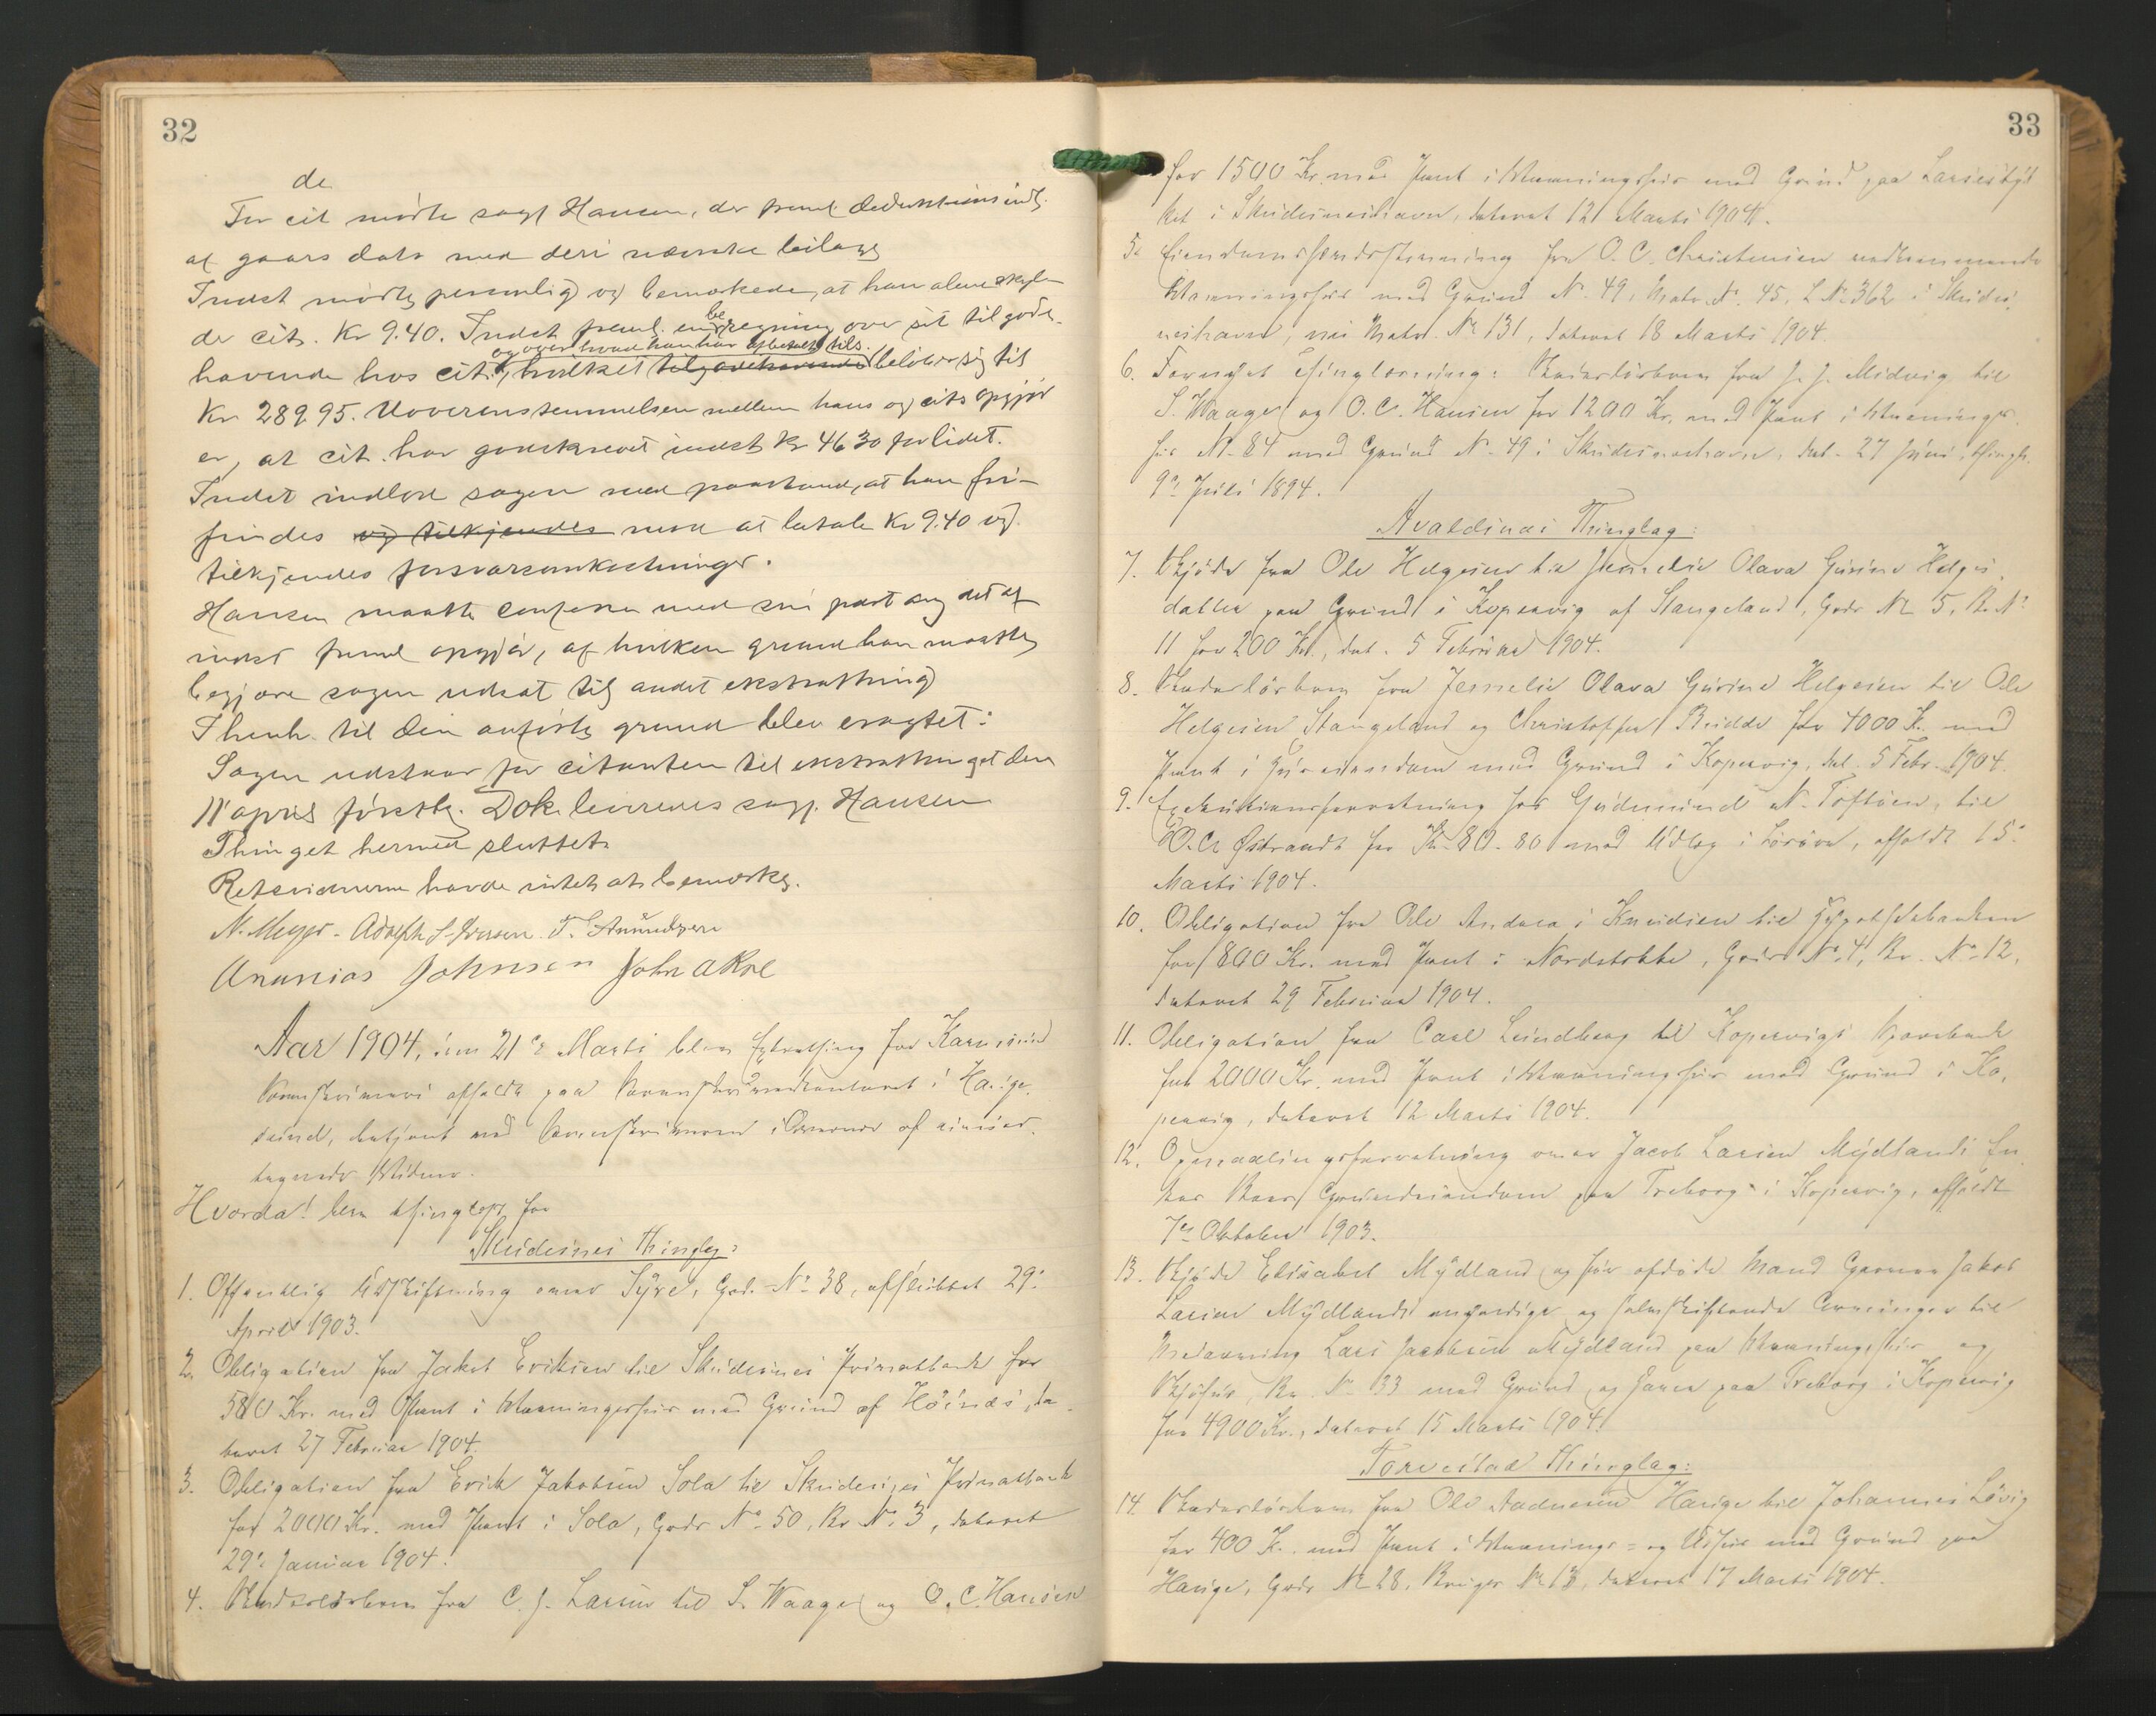 32
de
For cit mødte sagf Hansen, der freml deduktionsindl.
af gaars dato med deri nævnte bilage
Indst mødte personlig og bemærkede, at han alene skyl-
der cit. Kr 9.40. Indst freml. en beregning over sit tilgode-
og over hvad han har afbetalt tils.
havende hos cit., hvilket tilgodehavende beløber sig til
Kr 289.95. Uoverensstemmelsen mellem hans og cits opgjør
er, at cit. har godskrevet indst Kr 46.30 for lidet.
Indst indlod sagen med paastand, at han fri-
findes og tilkjendes mod at betale Kr 9.40 og
tilkjendes forsvarsomkostninger.
Hansen maatte conferere med sin part ang det af
indst freml opgjør, af hvilken grund han maatte
begjære sagen udsat til andet ekstrathing
I henh. til den anførte grund blev eragtet:
Sagen udstaar for citanten til ekstrathinget den
11 april førstk. Dok. leveredes sagf. Hansen
Thinget hermed sluttet.
Retsvidnerne havde intet at bemærke.
N. Meyer. Adolph S. Iversen T. Amundsen
Ananias Johnsen John aKre
Aar 1904, den 21de Marts blev Extrathing for Karmsund
Sorenskriveri afholdt paa Sorenskriverkontoret i Hauge-
sund, betjent med Sorenskriveren i Overvær af
tagende Vidner.
Hvorda! blev thinglæst for
Skudesnes Thinglag:
1. Offentlig Udskiftning over Syre, Gd. No 38, afsluttet 29.
April 1903.
2. Obligation fra Jakob Eriksen til Skudesnes Privatbank for
580 Kr. med Pant i Vaaningshus med Grund af Høines, da-
teret 27 Februar 1904.
3. Obligation fra Erik Jakobsen Sola til Skudesnes Privatbank
for 2000 Kr. med Pant i Sola, Gaards No 50, Br No 3, dateret
29de Januar 1904.
4. Skadesløsbrev fra C. J. Larsen til S. Waage og O. C. Hansen
33
for 1500 Kr. med Pant i Vaaningshus med Grund paa
ket i Skudesneshavn, dateret 12 Marts 1904.
5. Eiendomsfordskrivning fra O. C. Christensen vedkommende
Vaaningshus med Grund No. 49, Matr. No. 45, L No 362 i Skudes-
neshavn, nu Matr. No 131, dateret 18 Marts 1904.
6. Fornyet Thinglæsning: Skadesløsbrev fra J. J. Midvig til
S. Waage og O. C. Hansen for 1200 Kr. med Pant i Vaanings-
hus No 84 med Grund No. 49 i Skudesneshavn, dat. 27 Juni, thingl.
9de Juli 1894.
Avaldsnæs Thinglag:
7. Skjøde fra Ole Helgesen til Jesselie Olava Gurine Helges-
datter paa Grund i Kopervig af Stangeland, Gards No 5, B. No
11 for 200 Kr., dat. 5 Februar 1904.
8. Skadesløsbrev fra Jesselie Olava Gurine Helgesen til Ole
Helgesen Stangeland og Christoffer Bridde for 4000 K. med
Pant i Huseiendom med Grund i Kopervig, dat. 5 Febr. 1904.
9. Executionsforretning hos Gudmund N. Toftøen, til
O. C. Østrandt for Kr. 80.80 med Udlæg i Løsøre, afholdt 15.
Marts 1904.
10. Obligation fra Ole Andreas Knudsen til Hypothekbanken
for 800 Kr. med Pant i Nordstokke, Gards No. 4, Br. No. 12,
dateret 29 Februar 1904.
11. Obligation fra Carl Lundberg til Kopervigs Sparebank
for 2000 Kr. med Pant i Vaaningshus med Grund i Ko-
pervig, dateret 12 Marts 1904.
12. Opmaalingsforretning over Jacob Larsen Mydlands En-
kes Grundeiendom paa Treborg i Kopervig, afholdt
7de Oktober 1903.
13. Skjøde Elisabet Mydland og hos afdøde Mand Garver Jakob
Larsen Mydlands myndige og selvskiftende Arvinger til
Medarving Lars Jacobsen Mydland paa Vaaningshus og
Sjøhus, Br. No 33 med Grund og Have paa Treborg i Kopervig
for 4900 Kr., dateret 15 Marts 1904.
Torvestad Thinglag:
14. Skadesløsbrev fra Ole Aadnesen Hauge til Johannes Løvig
for 400 K. med Pant i Vaanings- og Udhus med Grund paa
Hauge, Gards No 28, Bruges No 13, dateret 17 Marts 1904.